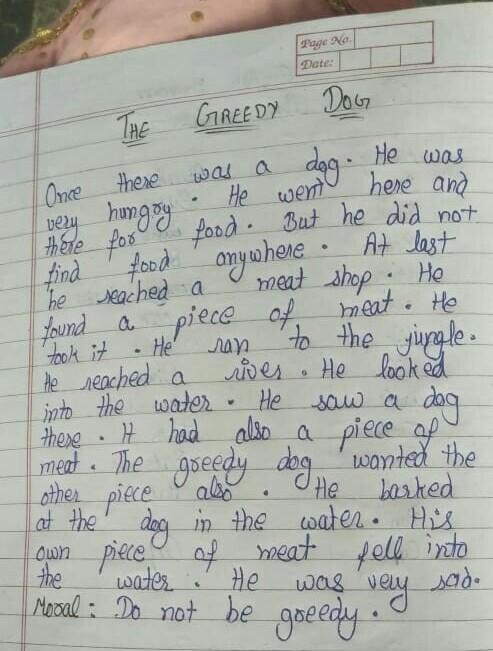 Page No.
Date:
THE GREEDY DOG
Once there was a dog. He was
very hungry. He went here and
there for food. But he did not
find food anywhere. At last
he reached a meat shop. He
found a piece of meat. He
took it. He ran to the jungle.
He reached a river. He looked
into the water. He saw a dog
there. It had also a piece of
meat. The greedy dog wanted the
other piece also. He barked
at the dog in the water. His
own piece of meat fell into
the water. He was very sad.
Moral: Do not be greedy.